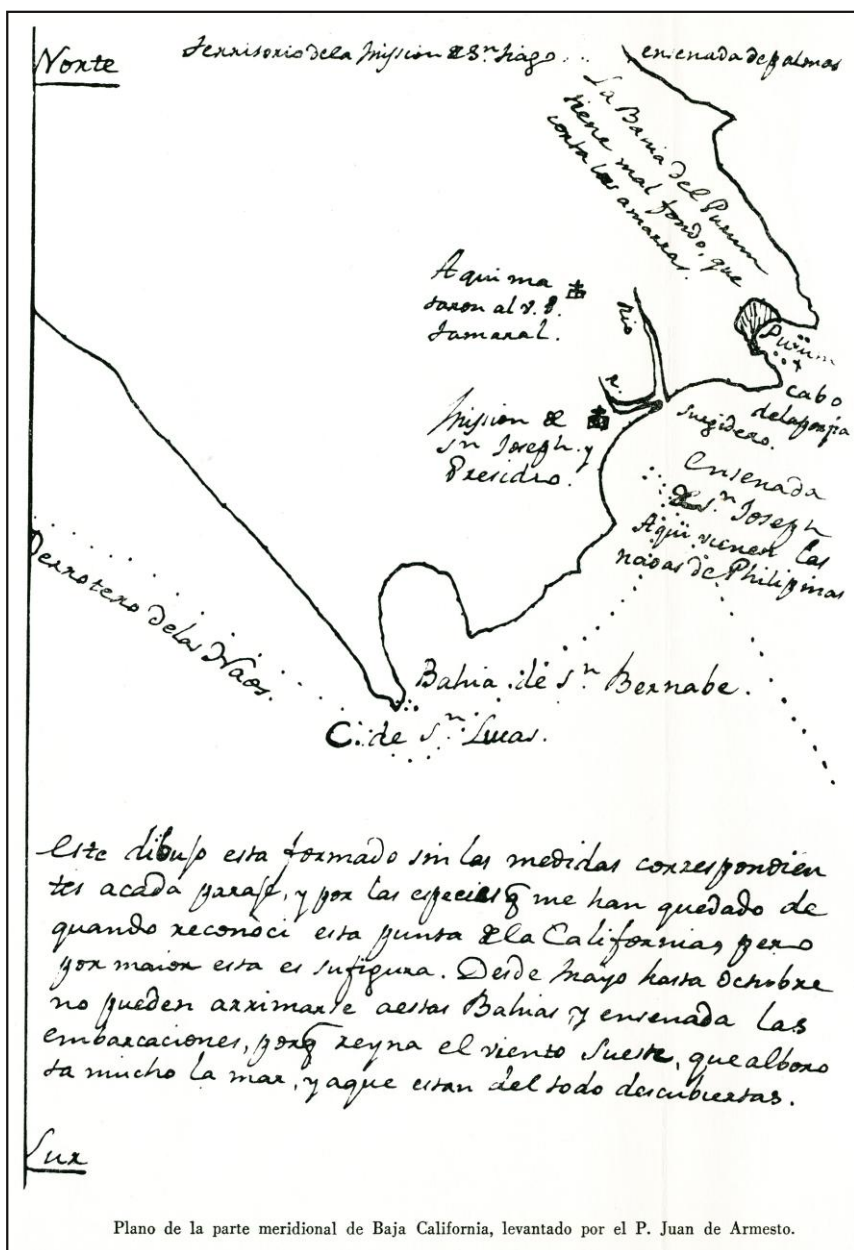 Norte
Territorio de la Mission de Sn. Tiago...
ensenada de palmas
La Bahia del Purum
tiene mal fondo, que
corta las amarras.
Aqui ma
taron al V. P.
Tamaral.
Rio
R.
Purum
cabo
de la porfia
surgidero.
Mission de
Sn Joseph. y
Presidio.
ensenada
de Sn. Joseph
Aqui vienen las
naos de Philipinas
Derrotero de las Naos.
Bahia de Sn. Bernabe.
C. de Sn Lucas.
Este dibujo esta formado sin las medidas correspondien
tes acada paraje, y por las especies q me han quedado de
quando reconoci esta punta de la California, pero
por maior esta es su figura. Desde Mayo hasta Octubre
no pueden arrimarse aestas Bahias, y ensenada las
embarcaciones, porq reyna el viento Sueste, que albоro
ta mucho la mar, yaque estan del todo descubiertas.
Sur
Plano de la parte meridional de Baja California, levantado por el P. Juan de Armesto.